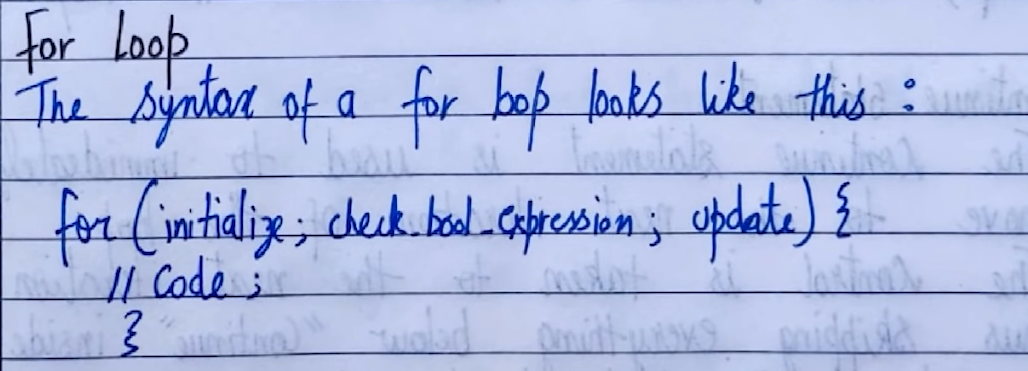 for Loop
The syntax of a for loop looks like this :
for (initialize; check_bool_expression; update) {
// Code ;
}